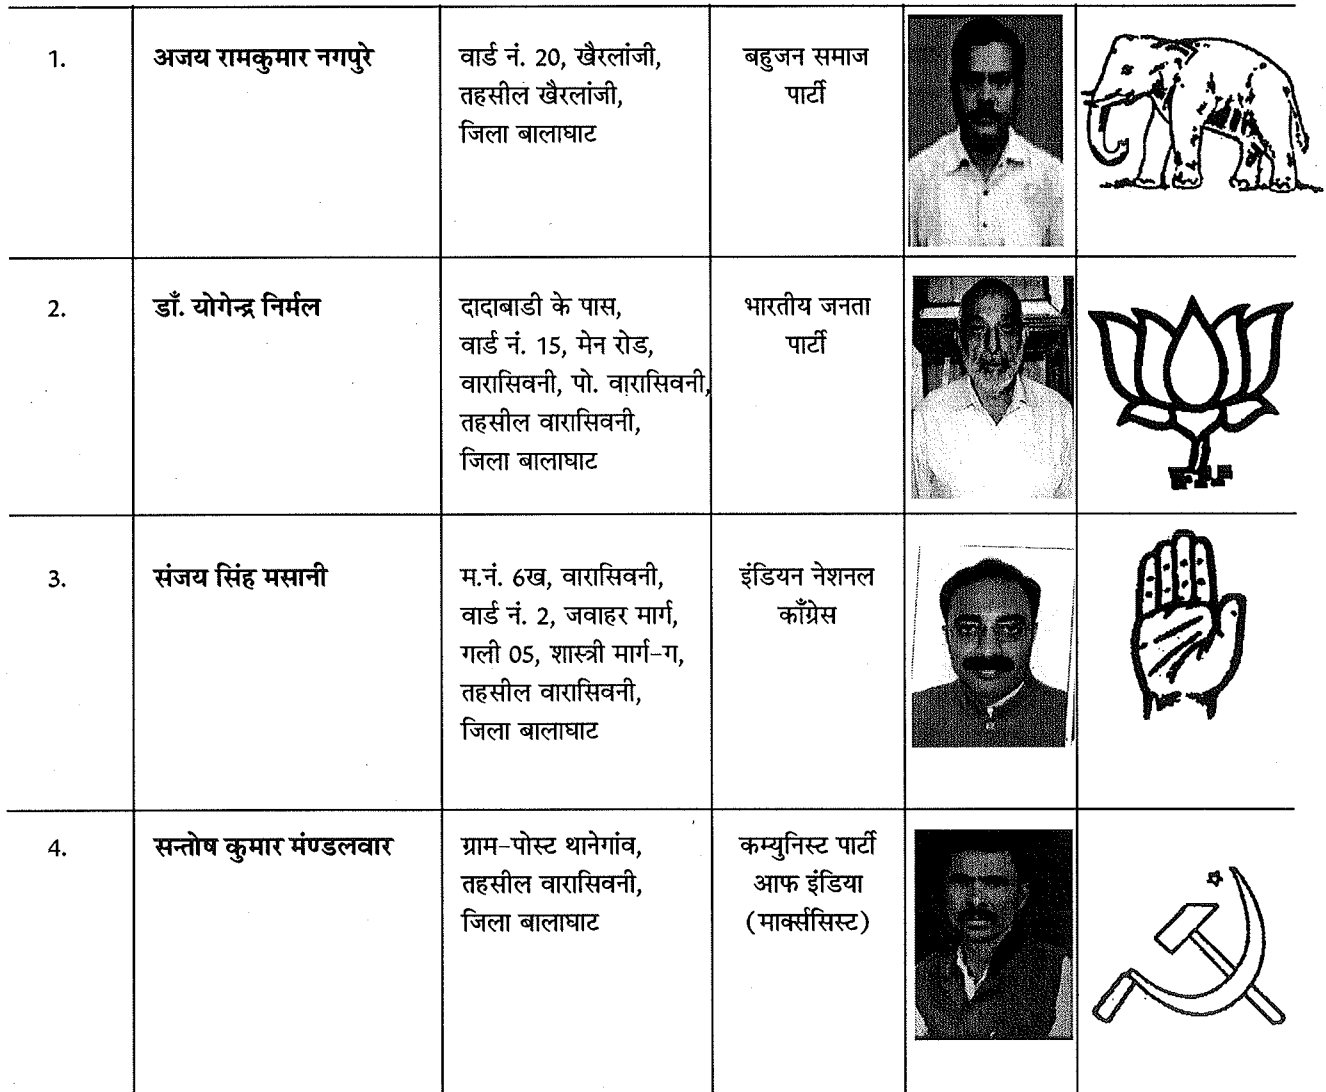 1.
अजय रामकुमार नगपुरे
वार्ड नं. 20, खैरलांजी,
तहसील खैरलांजी,
जिला बालाघाट
बहुजन समाज
पार्टी
2.
डाॅं. योगेन्द्र निर्मल
दादाबाडी के पास,
वार्ड नं. 15, मेन रोड,
वारासिवनी, पो. वारासिवनी,
तहसील वारासिवनी,
जिला बालाघाट
भारतीय जनता
पार्टी
3.
संजय सिंह मसानी
म.नं. 6ख, वारासिवनी,
वार्ड नं. 2, जवाहर मार्ग,
गली 05, शास्त्री मार्ग-ग,
तहसील वारासिवनी,
जिला बालाघाट
इंडियन नेशनल
काँग्रेस
4.
सन्तोष कुमार मंण्डलवार
ग्राम-पोस्ट थानेगांव,
तहसील वारासिवनी,
जिला बालाघाट
कम्युनिस्ट पार्टी
आफ इंडिया
(मार्क्ससिस्ट)